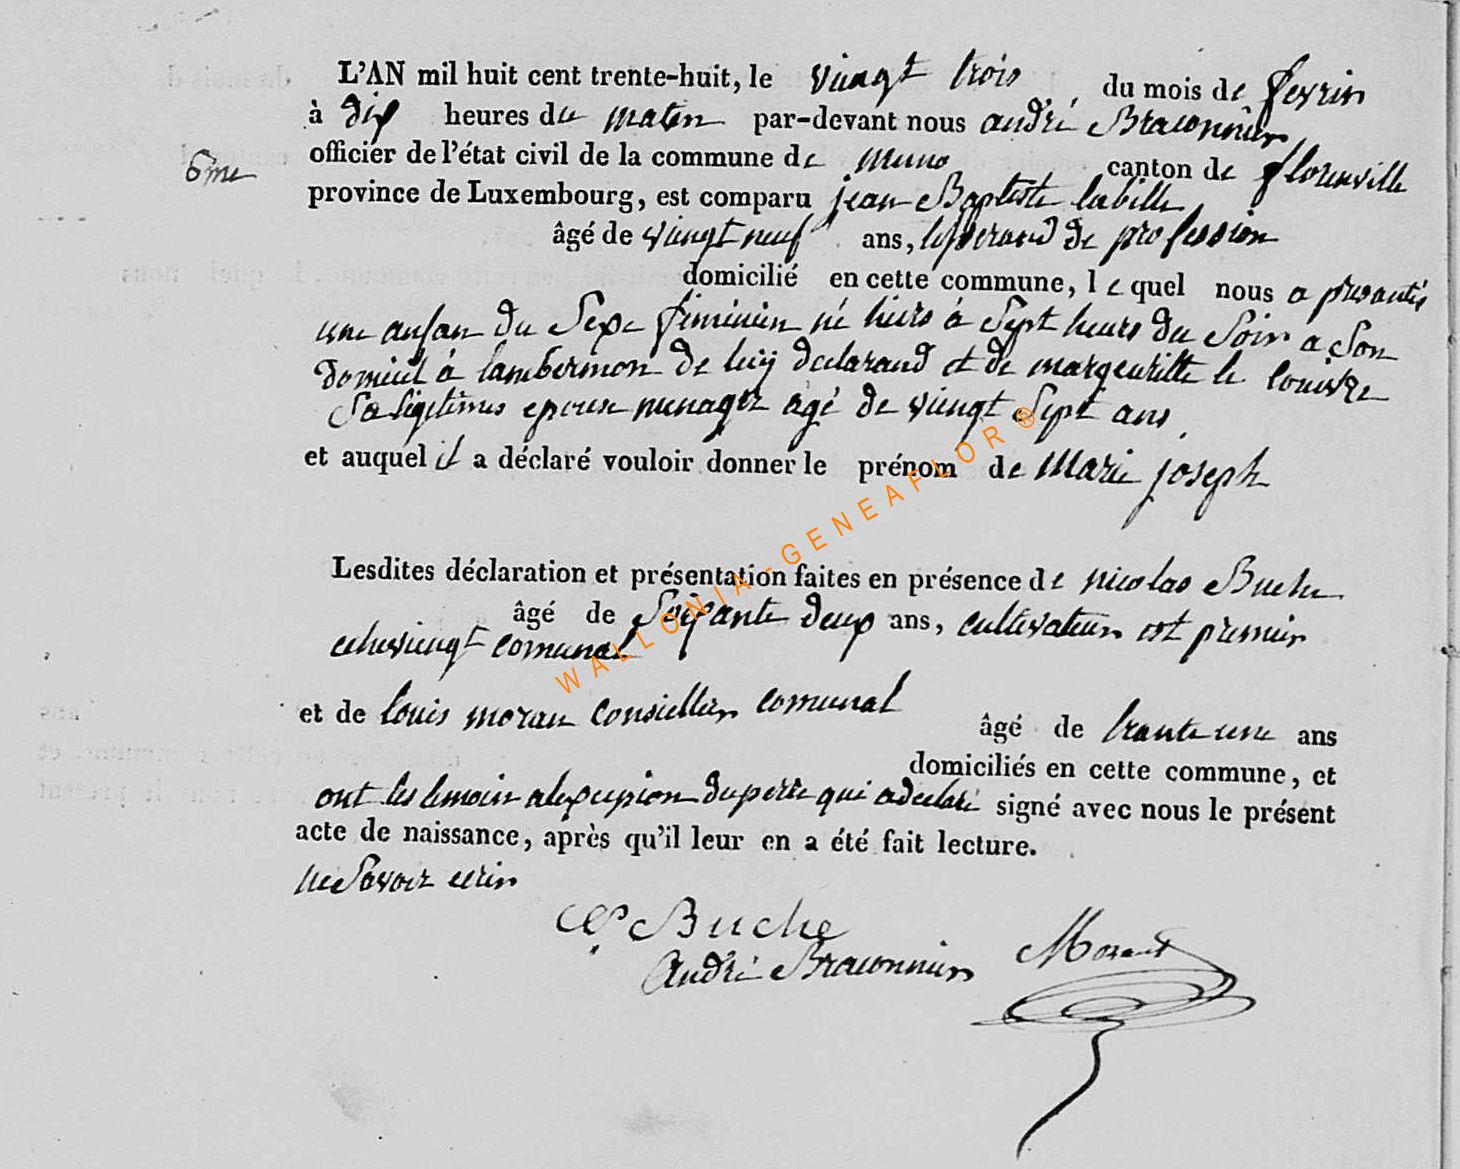 L'AN mil huit cent trente-huit, le vingt trois du mois de fevrier
à dix heures du maten par-devant nous andré Braconnier
6me
officier de l'état civil de la commune de muno canton de florenville
province de Luxembourg, est comparu jean Baptiste labille
âgé de vingt neuf ans, de profession
domicilié en cette commune, lequel nous a presanté
une anfan du Sexe feminien né hiers à Sept heurs du Soir a Son
domicil à lambermon de luij declarand et de margeuritte le
Sa legitimes epouse menager agé de vingt Sept ans
et auquel il a déclaré vouloir donner le prénom de Marie joseph
Lesdites déclaration et présentation faites en présence de nicolas Buche
âgé de Soixante deux ans, cultivateur est premier
echevieng comunal
et de louis moran consiellier comunal âgé de trante une ans
domiciliés en cette commune, et
ont les temoin alexcepion du perre qui a declaré signé avec nous le présent
acte de naissance, après qu'il leur en a été fait lecture.
ne Savoir ecrir
Buche
André Braconnier Morant
WALLONIA-GENEAFLOR®